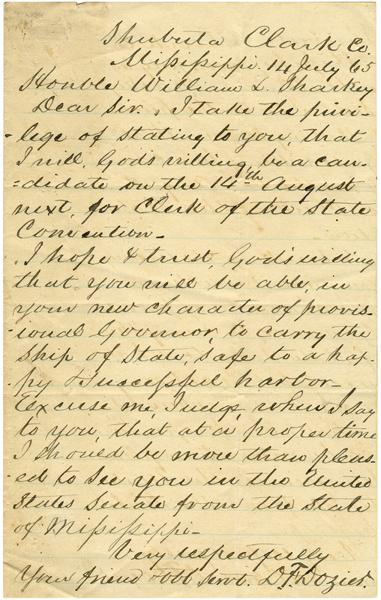 Shubuta Clark Co.
Missisippi. 14 July 65
Honble William L. Sharkey
Dear Sir, I take the privi-
-lege of stating to you, that
I will, God's willing, be a can-
=didate on the 14th August
next, for Clerk of the State
Convention-
I hope & trust, God's willing
that you will be able, in
your new character of provis-
-ional Governor, to carry the
Ship of State, safe to a hap-
-py & successful harbor-
Excuse me, Judge, when I say
to you, that at a proper time
I should be more than pleas-
-ed to see you in the United
States Senate from the State
of Missisippi-
Very respectfully
Your friend & obt servt. D.F. Dozier.